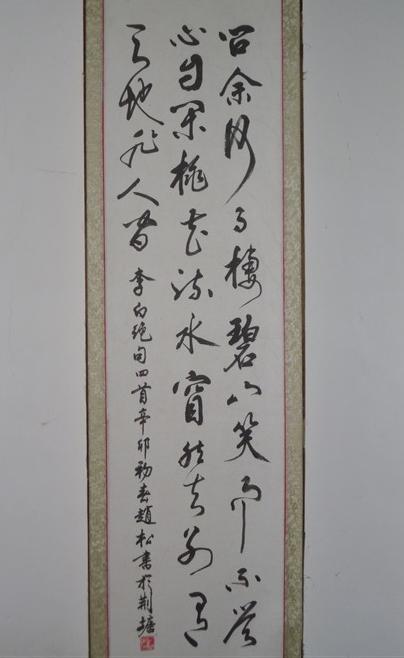 問余何事棲碧山笑而不答
心自閑桃花流水窅然去別有
天地非人間
李白绝句四首辛卯初春趙松書於荆塘